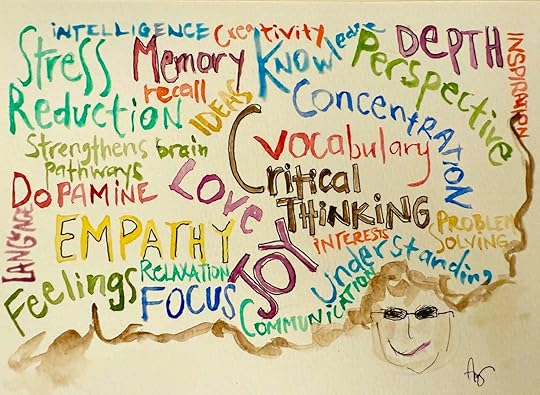 INTELLIGENCE
Creativity
Stress
Reduction
Memory
recall
IDEAS
Knowledge
Perspective
DEPTH
INSPIRATION
CONCENTRATION
Strengthens brain
Pathways
Vocabulary
Critical
THINKING
DOPAMINE
LOVE
LANGUAGE
EMPATHY
JOY
INTERESTS
PROBLEM
SOLVING
Understanding
Feelings
RELAXATION
FOCUS
COMMUNICATION